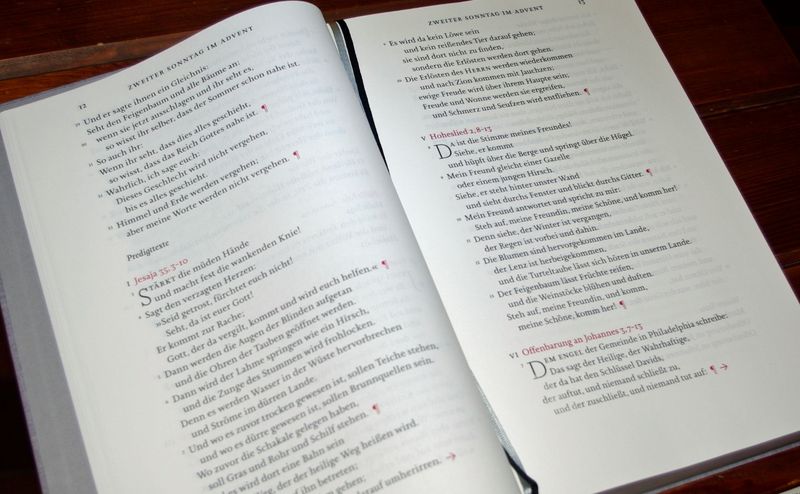 12
ZWEITER SONNTAG IM ADVENT
29 Und er sagte ihnen ein Gleichnis:
Seht den Feigenbaum und alle Bäume an:
30 wenn sie jetzt ausschlagen und ihr seht es,
so wisst ihr selber, dass der Sommer schon nahe ist.
31 So auch ihr:
Wenn ihr seht, dass dies alles geschieht,
so wisst, dass das Reich Gottes nahe ist. ¶
32 Wahrlich, ich sage euch:
Dieses Geschlecht wird nicht vergehen,
bis es alles geschieht.
33 Himmel und Erde werden vergehen;
aber meine Worte werden nicht vergehen. ¶
Predigttexte
I Jesaja 35,3-10
3 STÄRKT die müden Hände
und macht fest die wankenden Knie!
4 Sagt den verzagten Herzen:
»Seid getrost, fürchtet euch nicht!
Seht, da ist euer Gott!
Er kommt zur Rache;
Gott, der da vergilt, kommt und wird euch helfen.« ¶
5 Dann werden die Augen der Blinden aufgetan
und die Ohren der Tauben geöffnet werden.
6 Dann wird der Lahme springen wie ein Hirsch,
und die Zunge des Stummen wird frohlocken.
Denn es werden Wasser in der Wüste hervorbrechen
und Ströme im dürren Lande.
7 Und wo es zuvor trocken gewesen ist, sollen Teiche stehen,
und wo es dürre gewesen ist, sollen Brunnquellen sein.
Wo zuvor die Schakale gelegen haben,
soll Gras und Rohr und Schilf stehen. ¶
es wird dort eine Bahn sein
der der heilige Weg heißen wird.
ihn betreten;
gehen;
darauf umherirren. →
ZWEITER SONNTAG IM ADVENT
13
9 Es wird da kein Löwe sein
und kein reißendes Tier darauf gehen;
sie sind dort nicht zu finden,
sondern die Erlösten werden dort gehen.
10 Die Erlösten des HERRN werden wiederkommen
und nach Zion kommen mit Jauchzen;
ewige Freude wird über ihrem Haupte sein;
Freude und Wonne werden sie ergreifen,
und Schmerz und Seufzen wird entfliehen. ¶
V Hoheslied 2,8-13
8 DA ist die Stimme meines Freundes!
Siehe, er kommt
und hüpft über die Berge und springt über die Hügel.
9 Mein Freund gleicht einer Gazelle
oder einem jungen Hirsch.
Siehe, er steht hinter unsrer Wand
und sieht durchs Fenster und blickt durchs Gitter. ¶
10 Mein Freund antwortet und spricht zu mir:
Steh auf, meine Freundin, meine Schöne, und komm her!
11 Denn siehe, der Winter ist vergangen,
der Regen ist vorbei und dahin.
12 Die Blumen sind hervorgekommen im Lande,
der Lenz ist herbeigekommen,
und die Turteltaube lässt sich hören in unserm Lande.
13 Der Feigenbaum lässt Früchte reifen,
und die Weinstöcke blühen und duften.
Steh auf, meine Freundin, und komm,
meine Schöne, komm her! ¶
VI Offenbarung an Johannes 3,7-13
7 DEM ENGEL der Gemeinde in Philadelphia schreibe:
Das sagt der Heilige, der Wahrhaftige,
der da hat den Schlüssel Davids,
der auftut, und niemand schließt zu,
und der zuschließt, und niemand tut auf: ¶ →